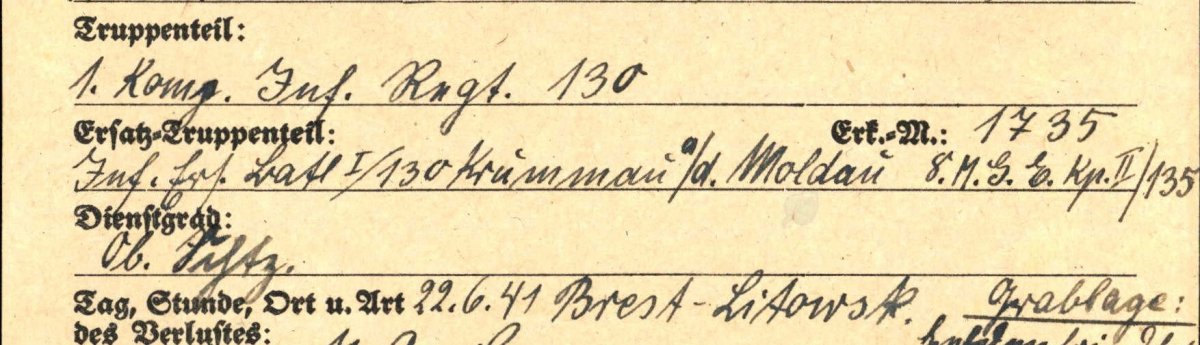 Truppenteil:
1. Komp. Inf. Regt. 130
Ersatz-Truppenteil: Erk.-M.: 1735
Inf. Ers. Batl I/130 Krummau a/d. Moldau 8. M. G. E. Kp. II/135
Dienstgrad:
Ob. Schtz.
Tag, Stunde, Ort u. Art 22.6.41 Brest-Litowsk. Grablage:
des Verlustes: